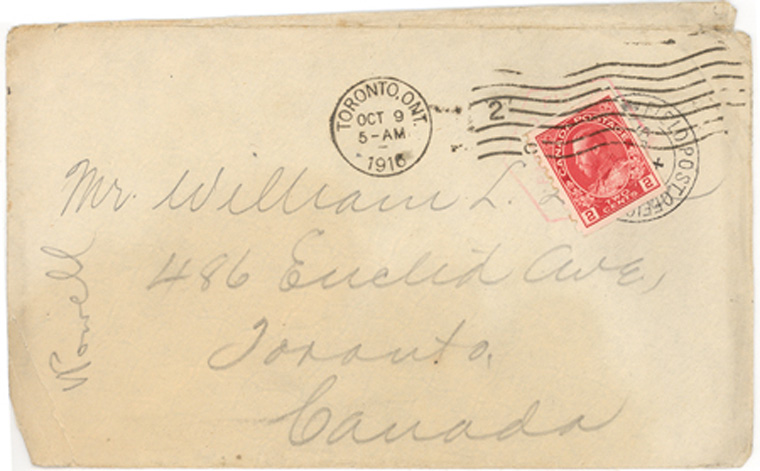 TORONTO, ONT.
OCT 9
5-AM
1916
2
CANADA POSTAGE
2 TWO CENTS 2
FIELD POST OFFICE
Mr. William L.
486 Euclid Ave,
Toronto,
Canada